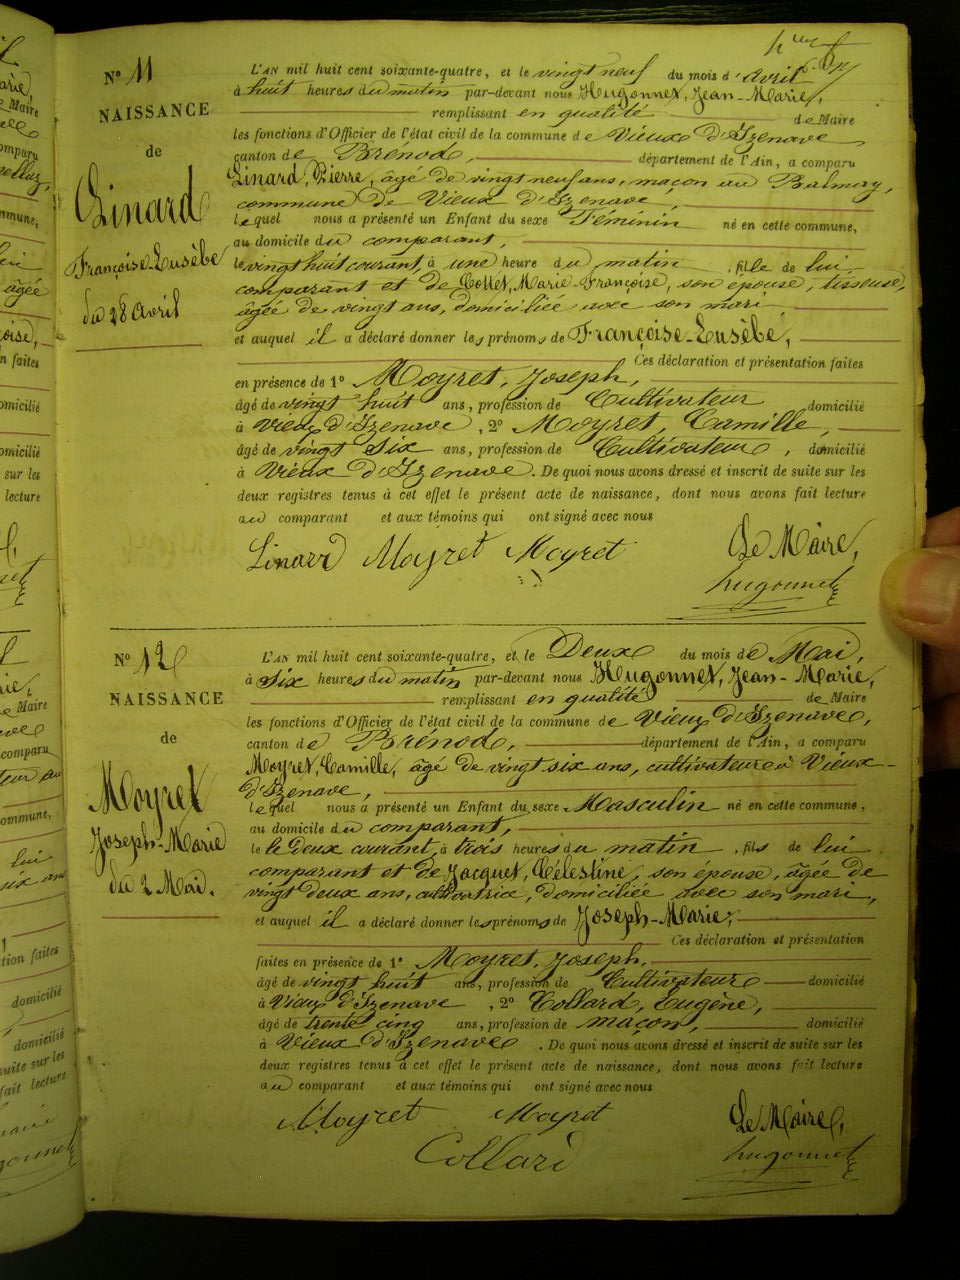 N° 11
NAISSANCE
de
Linard
Françoise-Eusèbe
du 28 Avril
L'AN mil huit cent soixante-quatre, et le vingt neuf du mois d'Avril
à huit heures du matin par-devant nous Hugonnet, Jean-Marie,
remplissant en qualité de Maire
les fonctions d'Officier de l'état civil de la commune de Vieux d'Izenave
canton de Brénod, département de l'Ain, a comparu
Linard, Pierre, âgé de vingt neuf ans, maçon au Balmay,
commune de Vieux d'Izenave,
lequel nous a présenté un Enfant du sexe Féminin né en cette commune,
au domicile du comparant,
le vingt huit courant, à une heure du matin, fille de lui
comparant et de Collet, Marie-Françoise, son épouse, tisseuse,
âgée de vingt ans, domiciliée avec son mari
et auquel il a déclaré donner les prénoms de Françoise-Eusèbe,
Ces déclaration et présentation faites
en présence de 1° Moyret, Joseph,
âgé de vingt huit ans, profession de Cultivateur domicilié
à Vieux d'Izenave, 2° Moyret, Camille,
âgé de vingt six ans, profession de Cultivateur, domicilié
à Vieux d'Izenave. De quoi nous avons dressé et inscrit de suite sur les
deux registres tenus à cet effet le présent acte de naissance, dont nous avons fait lecture
au comparant et aux témoins qui ont signé avec nous
Linard Moyret Moyret Le Maire,
hugonnet
N° 12
NAISSANCE
de
Moyret
Joseph-Marie
du 2 Mai.
L'AN mil huit cent soixante-quatre, et le Deux du mois de Mai,
à six heures du matin par-devant nous Hugonnet, Jean-Marie,
remplissant en qualité de Maire
les fonctions d'Officier de l'état civil de la commune de Vieux d'Izenave,
canton de Brénod, département de l'Ain, a comparu
Moyret, Camille, âgé de vingt six ans, cultivateur à Vieux-
d'Izenave,
lequel nous a présenté un Enfant du sexe Masculin né en cette commune,
au domicile du comparant,
le le Deux courant, à trois heures du matin, fils de lui
comparant et de Jacquet, Célestine, son épouse, âgée de
vingt deux ans, cultivatrice, domiciliée avec son mari,
et auquel il a déclaré donner les prénoms de Joseph-Marie,
Ces déclaration et présentation
faites en présence de 1° Moyret, Joseph,
âgé de vingt huit ans, profession de Cultivateur domicilié
à Vieux d'Izenave, 2° Collard, Eugène,
âgé de trente cinq ans, profession de maçon, domicilié
à Vieux d'Izenave. De quoi nous avons dressé et inscrit de suite sur les
deux registres tenus à cet effet le présent acte de naissance, dont nous avons fait lecture
au comparant et aux témoins qui ont signé avec nous
Moyret Moyret Le Maire,
Collard hugonnet